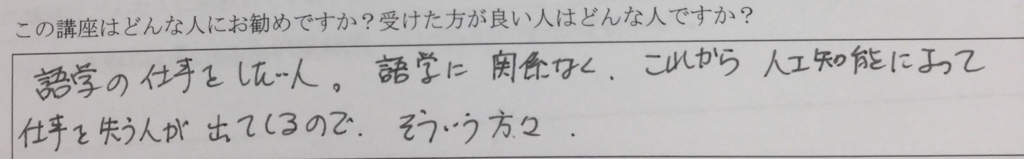 この講座はどんな人にお勧めですか？受けた方が良い人はどんな人ですか？
語学の仕事をしたい人。語学に関係なく、これから人工知能によって
仕事を失う人が出てくるので、そういう方々．